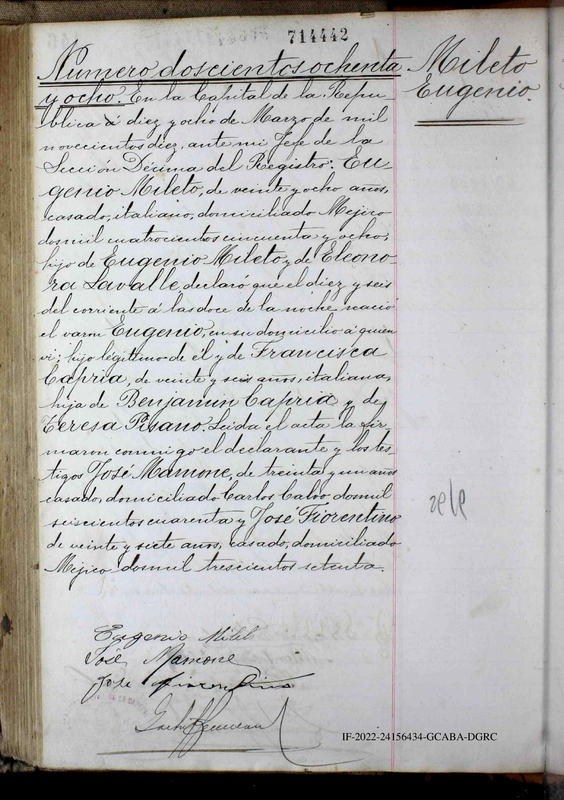 714442
Numero doscientos ochenta
y ocho. En la Capital de la Repu-
blica á diez y ocho de Marzo de mil
novecientos diez, ante mi Jefe de la
Sección Décima del Registro: Eu-
genio Mileto, de veinte y ocho años,
casado, italiano, domiciliado Mejico
dosmil cuatrocientos cincuenta y ocho,
hijo de Eugenio Mileto y de Eleono-
ra Lavalle, declaró que el diez y seis
del corriente á las doce de la noche nació
el varon Eugenio, en su domicilio á quien
vi; hijo legítimo de él y de Francisca
Capria, de veinte y seis años, italiana,
hija de Benjamin Capria y de
Teresa Pisano. Leida el acta la fir-
maron conmigo el declarante y los tes-
tigos José Mamone, de treinta y un años
casado, domiciliado Carlos Calvo dosmil
seiscientos cuarenta y José Fiorentino
de veinte y siete años, casado, domiciliado
Mejico dosmil trescientos setenta.
Mileto
Eugenio.
Eugenio Mileto
José Mamone
Jose Fiorentino
IF-2022-24156434-GCABA-DGRC